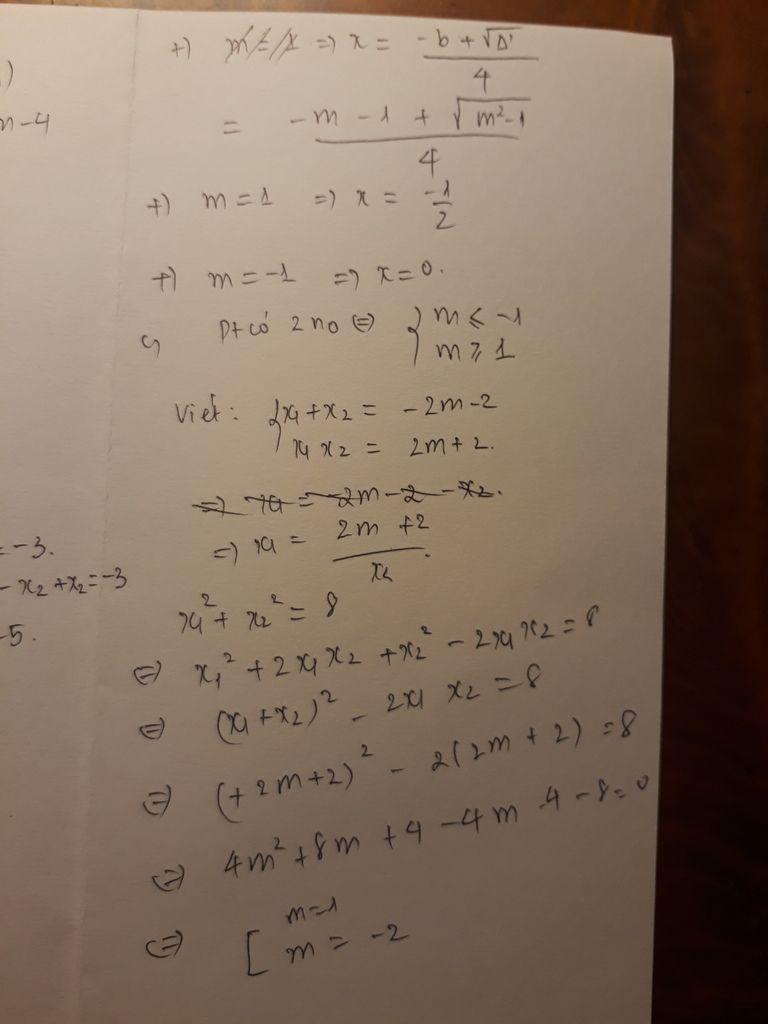 )
n-4
+) m = 1 => x = -b + √Δ' / 4
= -m - 1 + √m²-1 / 4
+) m = 1 => x = -1/2
+) m = -1 => x = 0.
c, Pt có 2 no <=> { m ≤ -1
m ≥ 1
Viet: { x₁ + x₂ = -2m-2
x₁ x₂ = 2m+2.
=> x₁ = -2m - 2 - x₂.
=> x₁ = 2m +2 / x₂.
= -3.
- x₂ + x₂ = -3
-5.
x₁² + x₂² = 8
<=> x₁² + 2x₁x₂ + x₂² - 2x₁x₂ = 8
<=> (x₁ + x₂)² - 2x₁ x₂ = 8
<=> (+ 2m+2)² - 2(2m + 2) = 8
<=> 4m² + 8m + 4 - 4m - 4 - 8 = 0
<=> [ m=1
m = -2